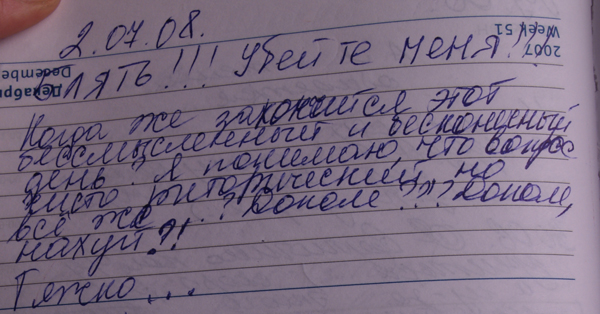 2.07.08.
БЛЯТЬ!!! Убейте меня!!
Когда же закончится этот
бессмысленный и бесконечный
день. Я понимаю, что вопрос
чисто риторический, но
всё же ...? Доколе ??? Доколе,
нахуй?!
Тяжко...
2007
Week 51
Декабрь
December